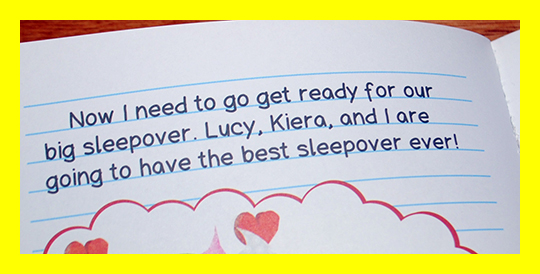 Now I need to go get ready for our
big sleepover. Lucy, Kiera, and I are
going to have the best sleepover ever!